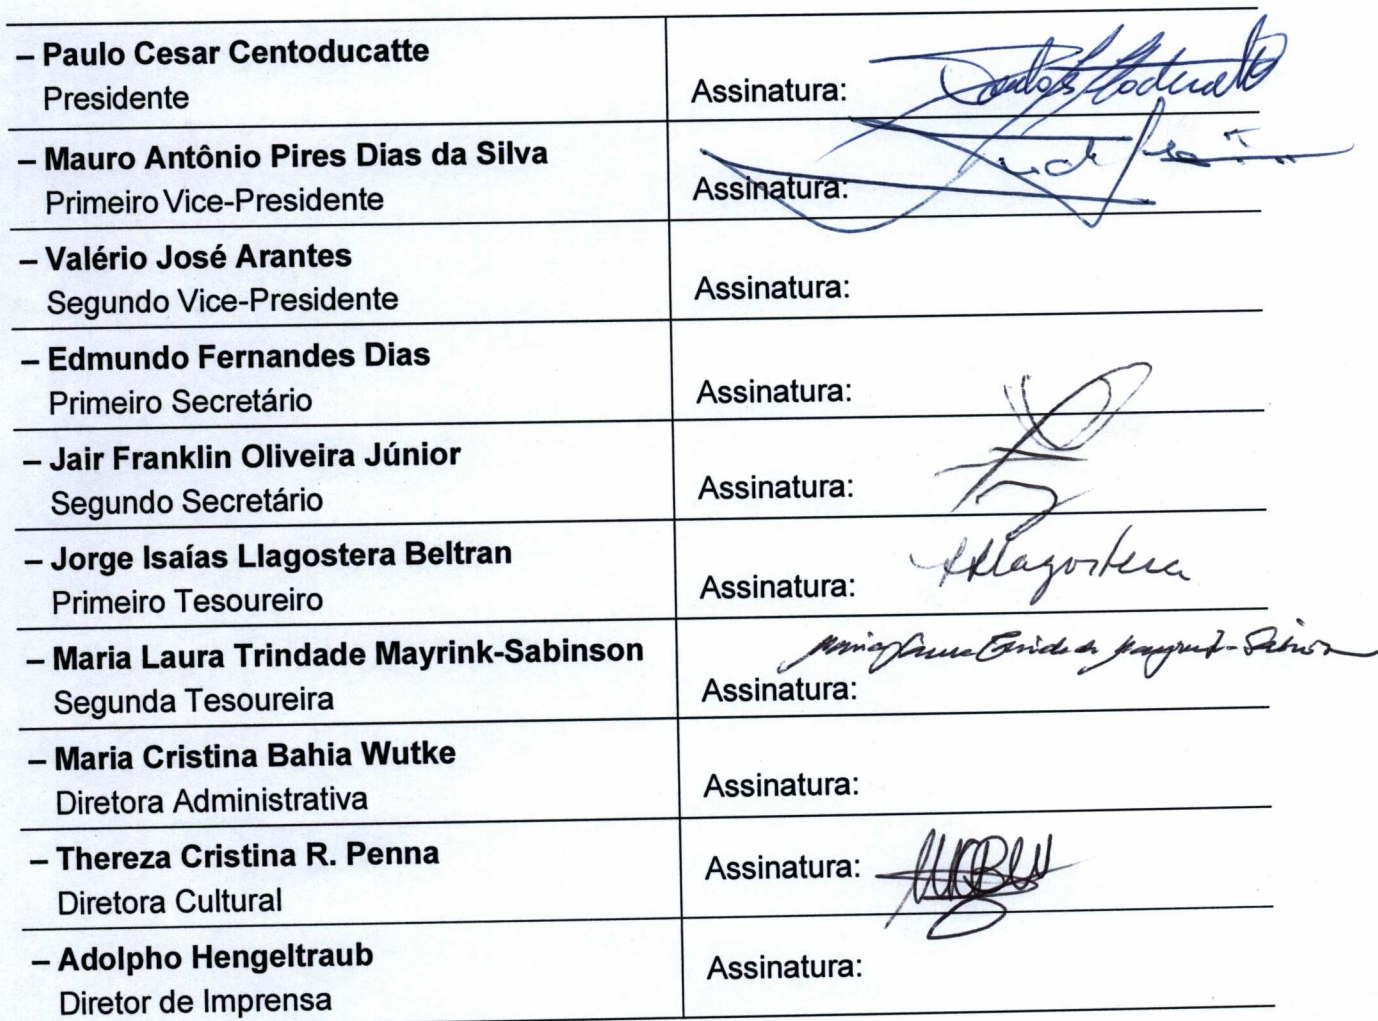 – Paulo Cesar Centoducatte
Presidente
Assinatura:
– Mauro Antônio Pires Dias da Silva
Primeiro Vice-Presidente
Assinatura:
– Valério José Arantes
Segundo Vice-Presidente
Assinatura:
– Edmundo Fernandes Dias
Primeiro Secretário
Assinatura:
– Jair Franklin Oliveira Júnior
Segundo Secretário
Assinatura:
– Jorge Isaías Llagostera Beltran
Primeiro Tesoureiro
Assinatura: Llagostera
– Maria Laura Trindade Mayrink-Sabinson
Segunda Tesoureira
Assinatura: Maria Laura Trindade Mayrink-Sabinson
– Maria Cristina Bahia Wutke
Diretora Administrativa
Assinatura:
– Thereza Cristina R. Penna
Diretora Cultural
Assinatura:
– Adolpho Hengeltraub
Diretor de Imprensa
Assinatura: